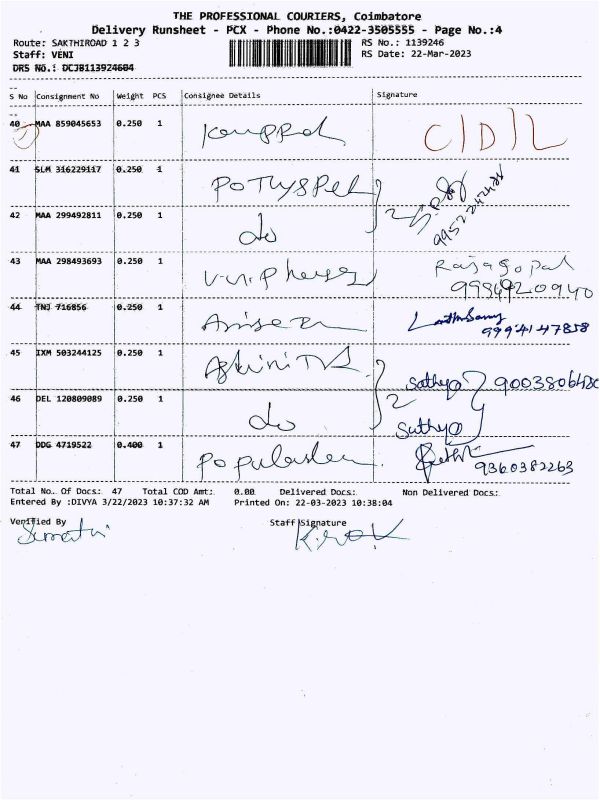 THE PROFESSIONAL COURIERS, Coimbatore
Delivery Runsheet - PCX - Phone No.:0422-3505555 - Page No.:4
Route: SAKTHIROAD 1 2 3 RS No.: 1139246
Staff: VENI RS Date: 22-Mar-2023
DRS No.: DCJB113924604
S No Consignment No Weight PCS Consignee Details Signature
40 MAA 859045653 0.250 1 C/D/L
41 SLM 316229117 0.250 1
9952242424
42 MAA 299492811 0.250 1 do
43 MAA 298493693 0.250 1 Rajagopal
44 TNJ 716856 0.250 1 9994147858
45 IXM 503244125 0.250 1 Sathya
46 DEL 120809089 0.250 1 do 2 Sathya
47 DDG 4719522 0.400 1 9360382263
Total No.. Of Docs: 47 Total COD Amt: 0.00 Delivered Docs: Non Delivered Docs:
Entered By :DIVYA 3/22/2023 10:37:32 AM Printed On: 22-03-2023 10:38:04
Verified By Staff Signature